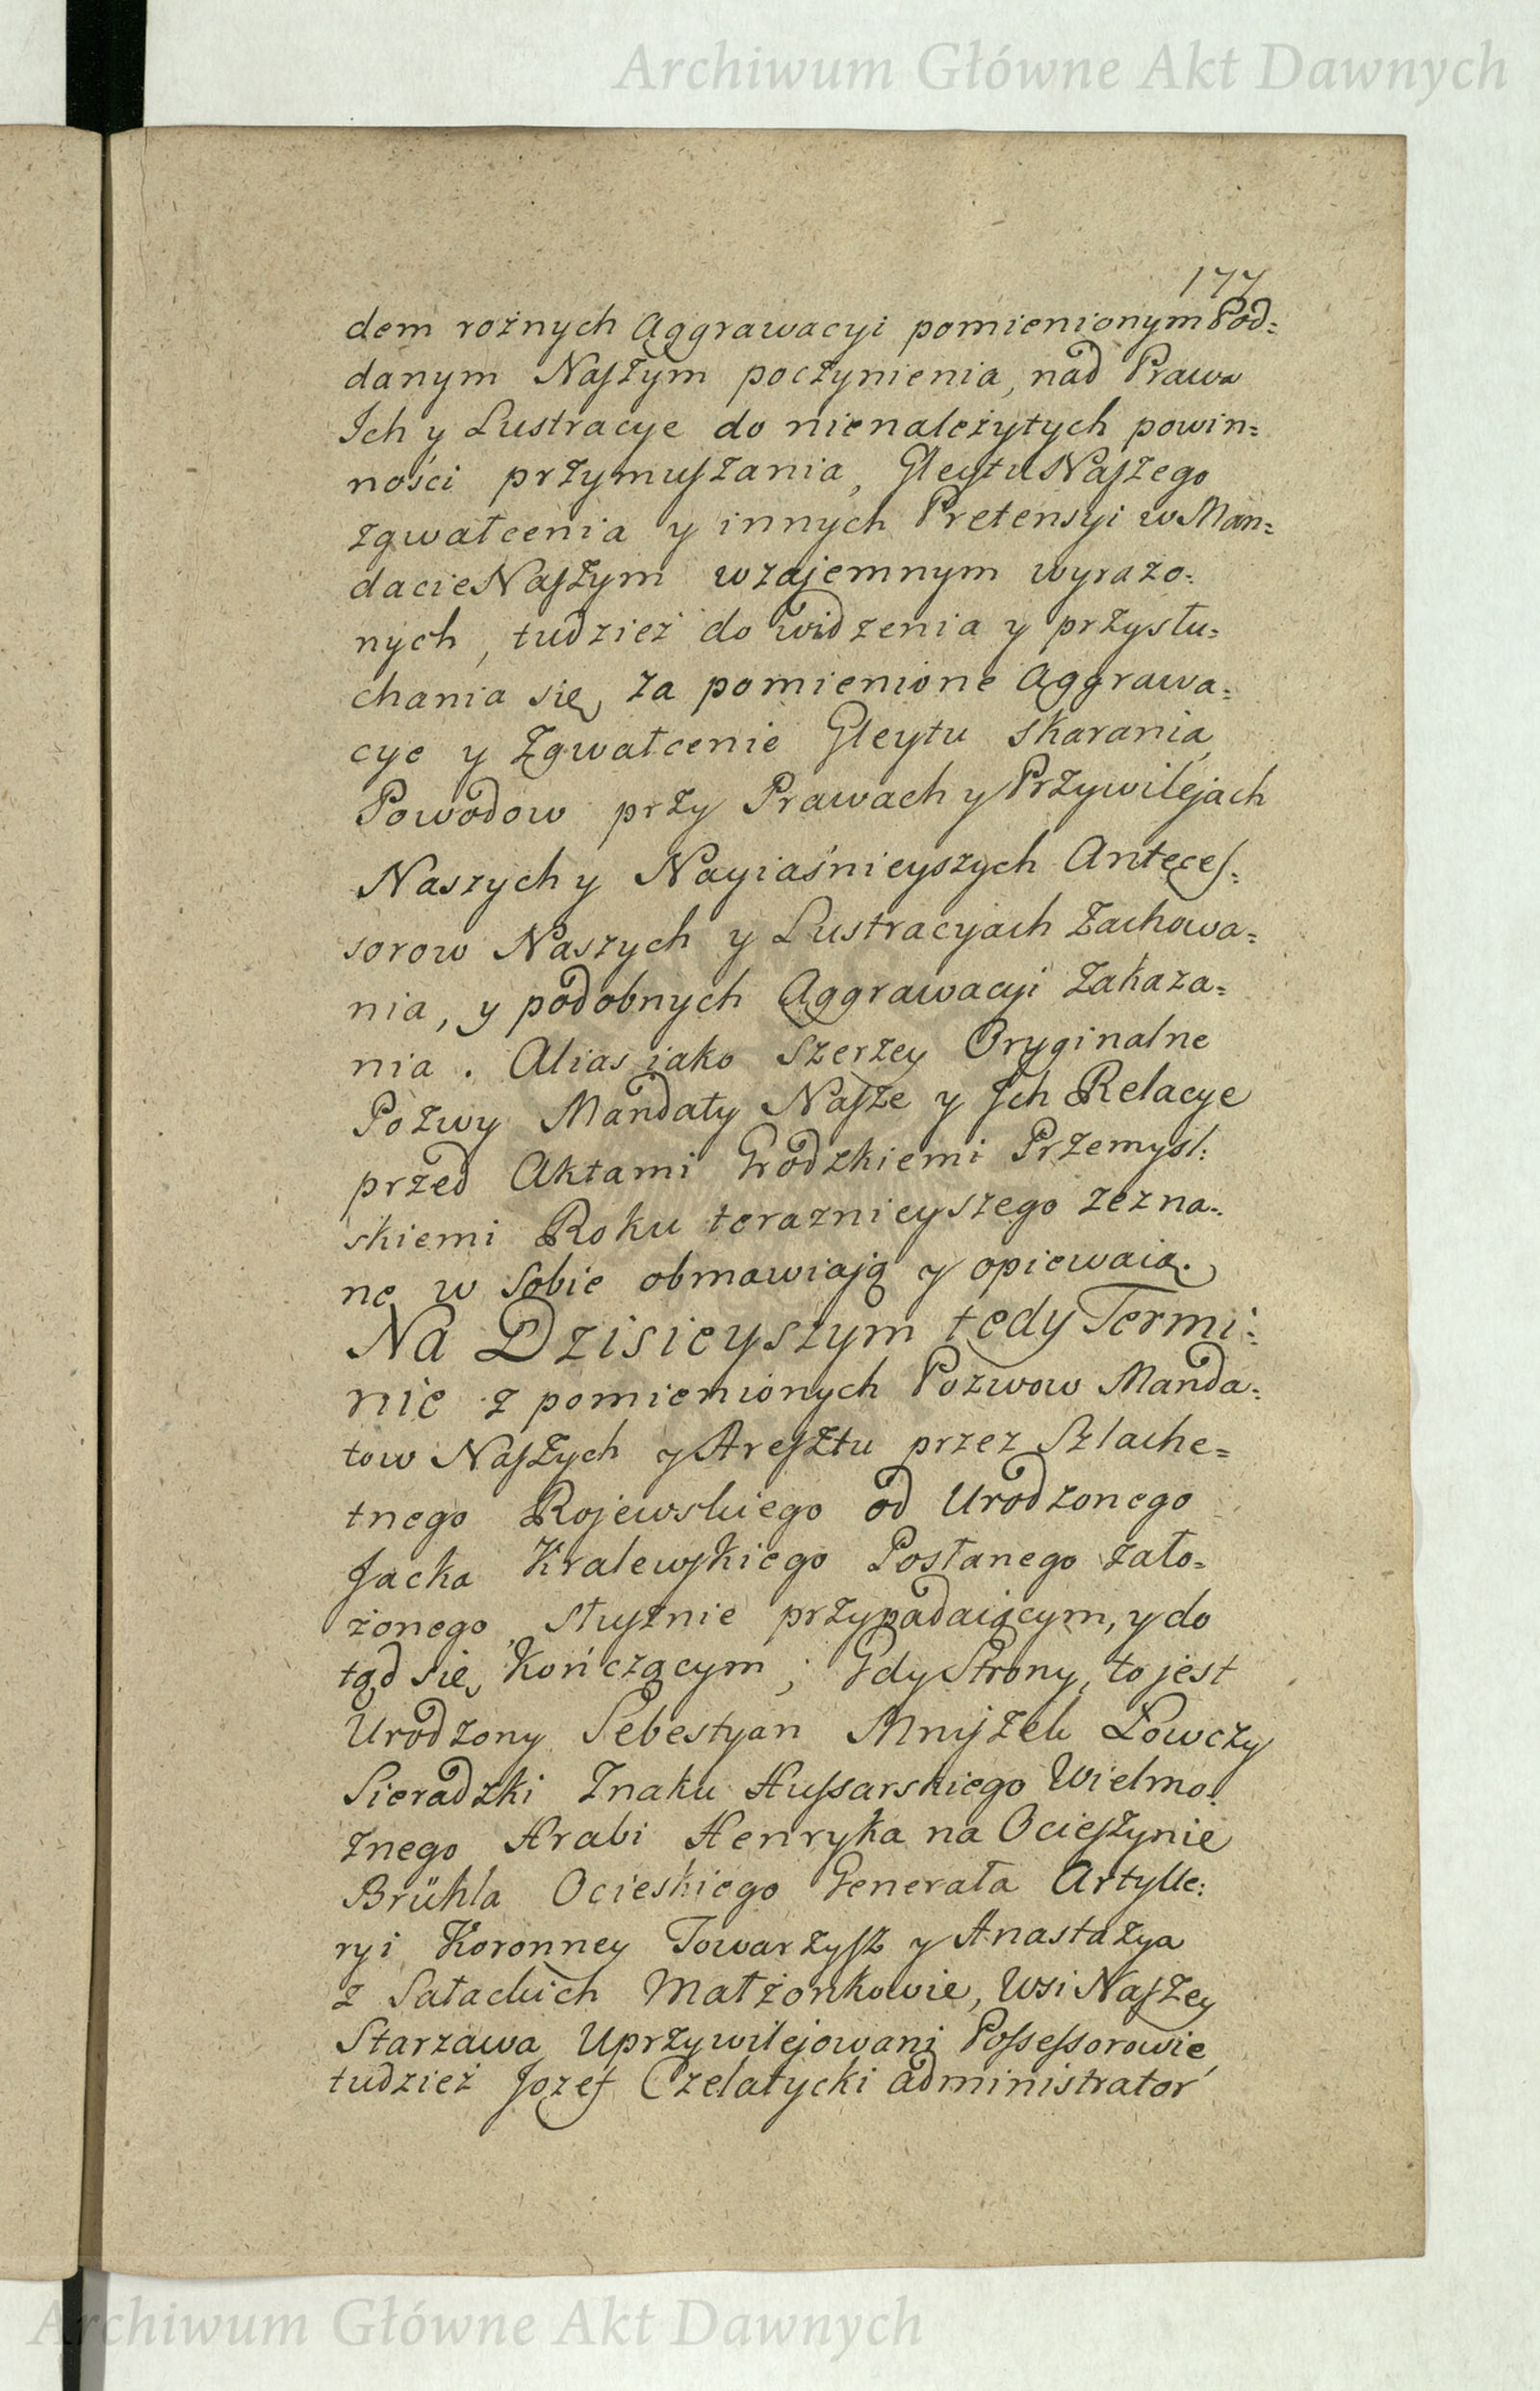 Archiwum Główne Akt Dawnych
177
dem rożnych Aggrawacyi pomienionym Pod=
danym Naszym poczynienia, nad Prawa
Ich y Lustracye do nienależytych powin=
ności przymuszania, Gleytu Naszego
zgwałcenia y innych Pretensyi w Man=
dacie Naszym wzajemnym wyrażo=
nych, tudzież do widzenia y przysłu=
chania się, za pomienione Aggrawa=
cye y Zgwałcenie Gleytu skarania,
Powodow przy Prawach y Przywilejach
Naszych y Nayiaśnieyszych Anteces=
sorow Naszych y Lustracyjach Zachowa=
nia, y podobnych Aggrawacyi Zakaza=
nia. Alias jako Szerzey Oryginalne
Pozwy Mandaty Nasze y Ich Relacye
przed Aktami Grodzkiemi Przemysl=
skiemi Roku teraznieyszego zezna=
ne w Sobie obmawiają y opiewaią.
Na Dzisieyszym tedy Termi=
nie z pomienionych Pozwow Manda=
tow Naszych y Aresztu przez Szlache=
tnego Rojewskiego od Urodzonego
Jacka Kralewskiego Posłanego zało=
żonego, słusznie przypadaiącym, y do
tąd się kończącym; Gdy Strony, to jest
Urodzony Sebestyan Mniszek Łowczy
Sieradzki Znaku Hussarskiego Wielmo=
żnego Hrabi Henryka na Ocieszynie
Brühla Ocieskiego Generała Artylle=
ryi Koronney Towarzysz y Anastazya
z Sałackich Małżonkowie, Wsi Naszey
Starzawa Uprzywilejowani Possessorowie,
tudzież Jozef Czelatycki Administrator
Archiwum Główne Akt Dawnych